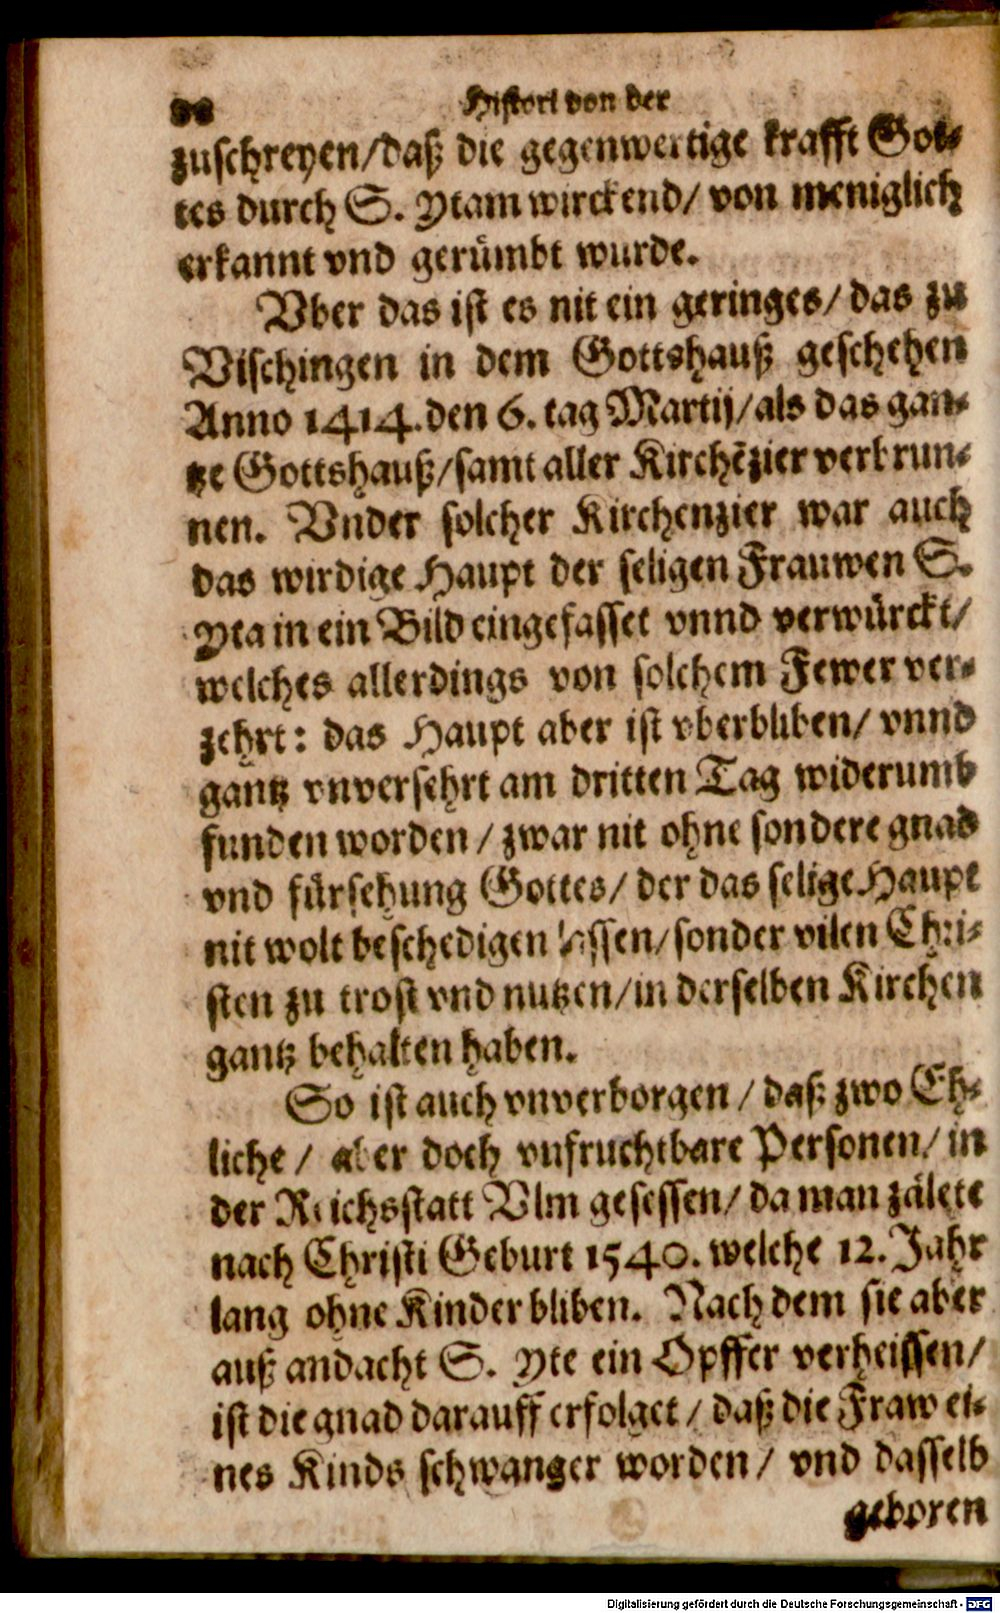 Histori von der
zuschreyen/daß die gegenwertige krafft Got-
tes durch S. Ytam wirckend/ von meniglich
erkannt vnd gerümbt wurde.
Vber das ist es nit ein geringes/ das zu
Vischingen in dem Gottshauß geschehen
Anno 1414. den 6. tag Martij/ als das gan-
tze Gottshauß/samt aller Kirchẽzier verbrun-
nen. Vnder solcher Kirchenzier war auch
das wirdige Haupt der seligen Frauwen S.
Yta in ein Bild eingefasset vnnd verwürckt/
welches allerdings von solchem Fewer ver-
zehrt: das Haupt aber ist vberbliben/ vnnd
gantz vnversehrt am dritten Tag widerumb
funden worden / zwar nit ohne sondere gnad
vnd fürsehung Gottes/ der das selige Haupt
nit wolt beschedigen lassen/ sonder vilen Chri-
sten zu trost vnd nutzen/in derselben Kirchen
gantz behalten haben.
So ist auch vnverborgen / daß zwo Eh-
liche / aber doch vnfruchtbare Personen/ in
der Reichsstatt Vlm gesessen/ da man zälete
nach Christi Geburt 1540. welche 12. Jahr
lang ohne Kinder bliben. Nach dem sie aber
auß andacht S. Yte ein Opffer verheissen/
ist die gnad darauff erfolget / daß die Fraw ei-
nes Kinds schwanger worden / vnd dasselb
geboren
Digitalisierung gefördert durch die Deutsche Forschungsgemeinschaft - DFG